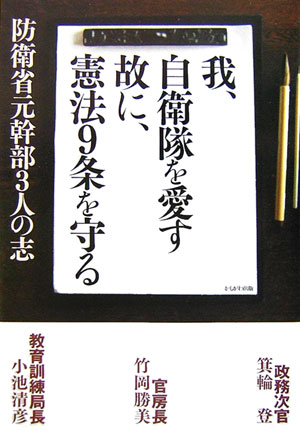 我、
自衛隊を愛す
故に、
憲法9条を守る
防衛省元幹部3人の志
かもがわ出版
政務次官
箕輪 登
官房長
竹岡勝美
教育訓練局長
小池清彦